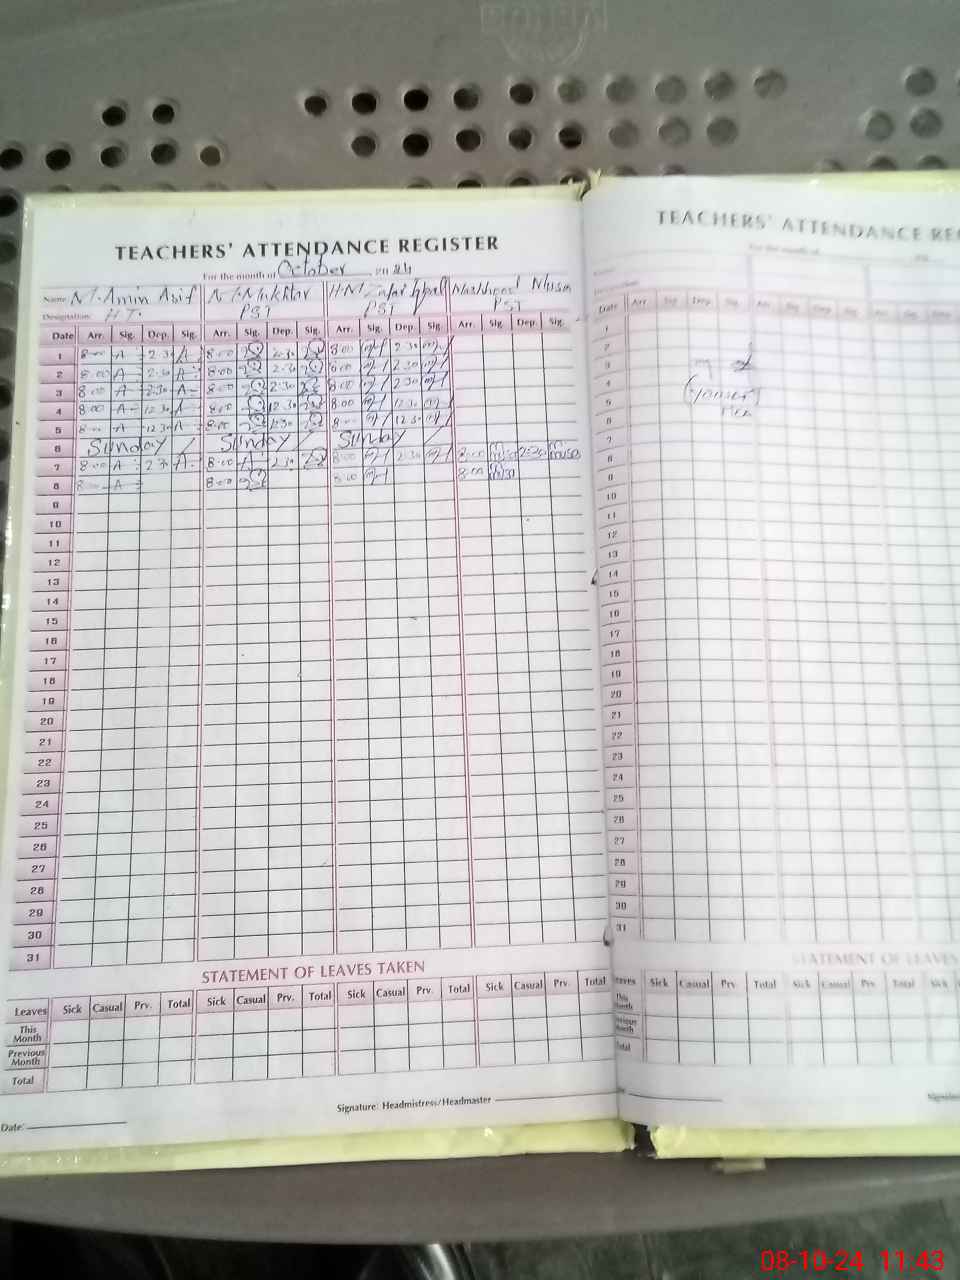 TEACHERS' ATTENDANCE REGISTER
For the month of October 20 24
Name M. Amin Asif M. Mukhtar H.M Zafar Iqbal
Designation: H.T. PST PST PST
Date Arr. Sig. Dep. Sig. Arr. Sig. Dep. Sig. Arr. Sig. Dep. Sig. Arr. Sig. Dep. Sig.
1 8:00 A 2:30 A 8:00 2:30 8:00 2:30
2 8:00 A 2:30 A 8:00 2:30 8:00 2:30
3 8:00 A 2:30 A 8:00 2:30 8:00 2:30
4 8:00 A 12:30 A 8:00 12:30 8:00 12:30
5 8:00 A 12:30 A 8:00 12:30 8:00 12:30
6 Sunday / Sunday / Sunday /
7 8:00 A 2:30 A 8:00 A 2:30 8:00 2:30 8:00 2:30
8 8:00 A 8:00 8:00 8:00
9
10
11
12
13
14
15
16
17
18
19
20
21
22
23
24
25
26
27
28
29
30
31
STATEMENT OF LEAVES TAKEN
Leaves Sick Casual Prv. Total Sick Casual Prv. Total Sick Casual Prv. Total Sick Casual Prv. Total
This Month
Previous Month
Total
Signature: Headmistress/Headmaster
Date:
TEACHERS' ATTENDANCE RE
For the month of
Arr. Sig. Dep. Sig. Arr. Sig. Dep. Sig. Arr. Sig.
1
2
3
4
5
6
7
8
9
10
11
12
13
14
15
16
17
18
19
20
21
22
23
24
25
26
27
28
29
30
31
STATEMENT OF LEAVES
Leaves Sick Casual Prv. Total Sick Casual Prv. Total Sick
This Month
Previous Month
Total
08-10-24 11:43